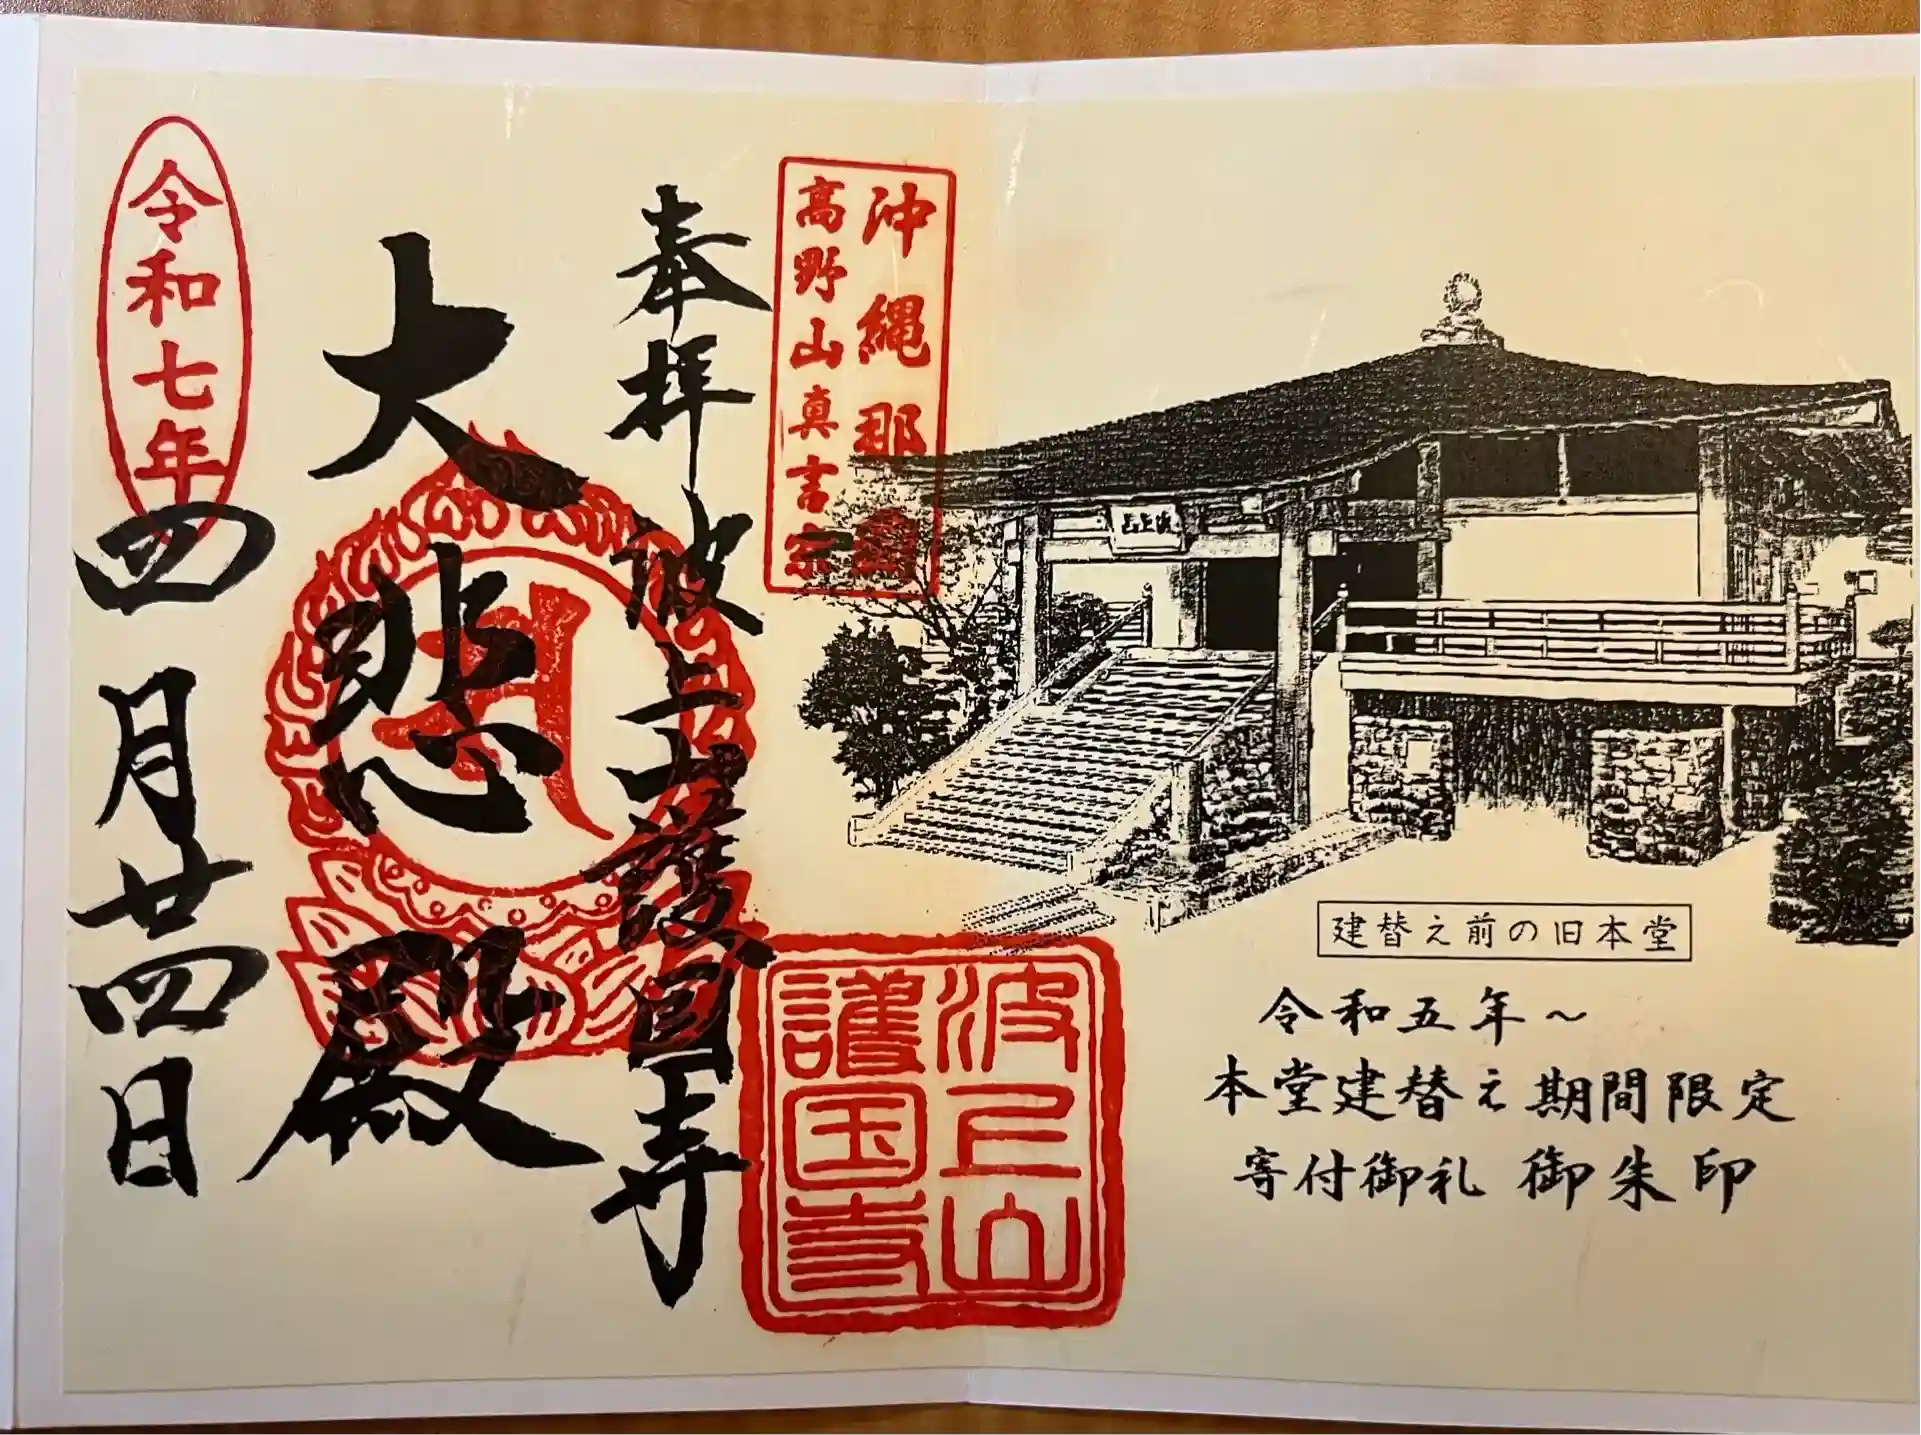 沖縄那覇
高野山真言宗
奉拝 波上山護国寺
大悲殿
令和七年四月廿四日
波上山
護国寺
建替え前の旧本堂
令和五年～
本堂建替え期間限定
寄付御礼 御朱印